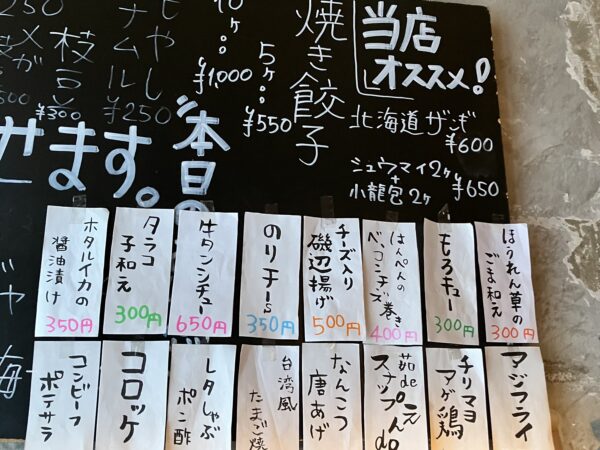 当店
オススメ!
北海道ザンギ
¥600
シュウマイ2ヶ
+
小龍包2ヶ
¥650
焼き餃子
5ヶ
¥550
10ヶ
¥1000
もやし
ナムル
¥250
枝豆
¥300
本日の
せます。
ほうれん草の
ごま和え
300円
もろキュー
300円
はんぺんの
ベーコンチーズ巻き
400円
チーズ入り
磯辺揚げ
500円
のりチーズ
350円
牛タンシチュー
650円
タラコ
子和え
300円
ホタルイカの
醤油漬け
350円
アジフライ
チリマヨ
アゲ鶏
茹de
スナップえんdo
なんこつ
唐あげ
台湾風
たまご焼
レタしゃぶ
ポン酢
コロッケ
コンビーフ
ポテサラ